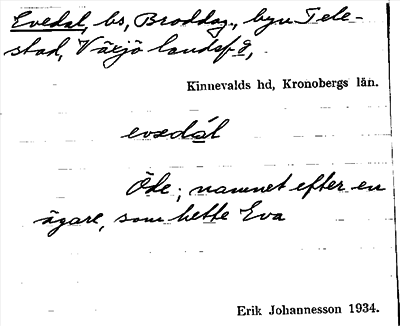 Evedal, bs, Broddag., byn Tele-
stad, Växjö landsf-g,
Kinnevalds hd, Kronobergs län.
evedál
Öde; namnet efter en
ägare, som hette Eva
Erik Johannesson 1934.